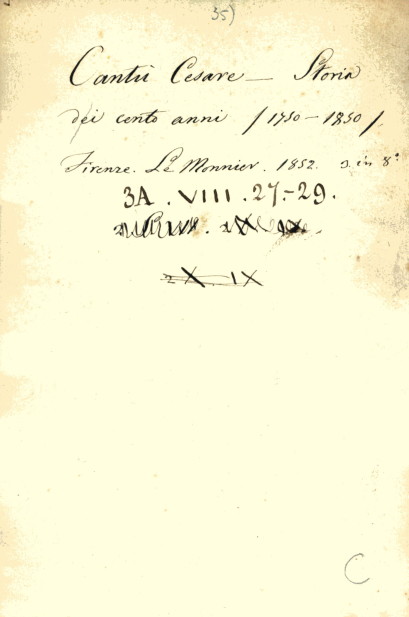 35)
Cantù Cesare — Storia
dei cento anni (1750 – 1850)
Firenze. Le Monnier. 1852. 3 in 8°
3A. VIII. 27.-29.
2 X. IX
C